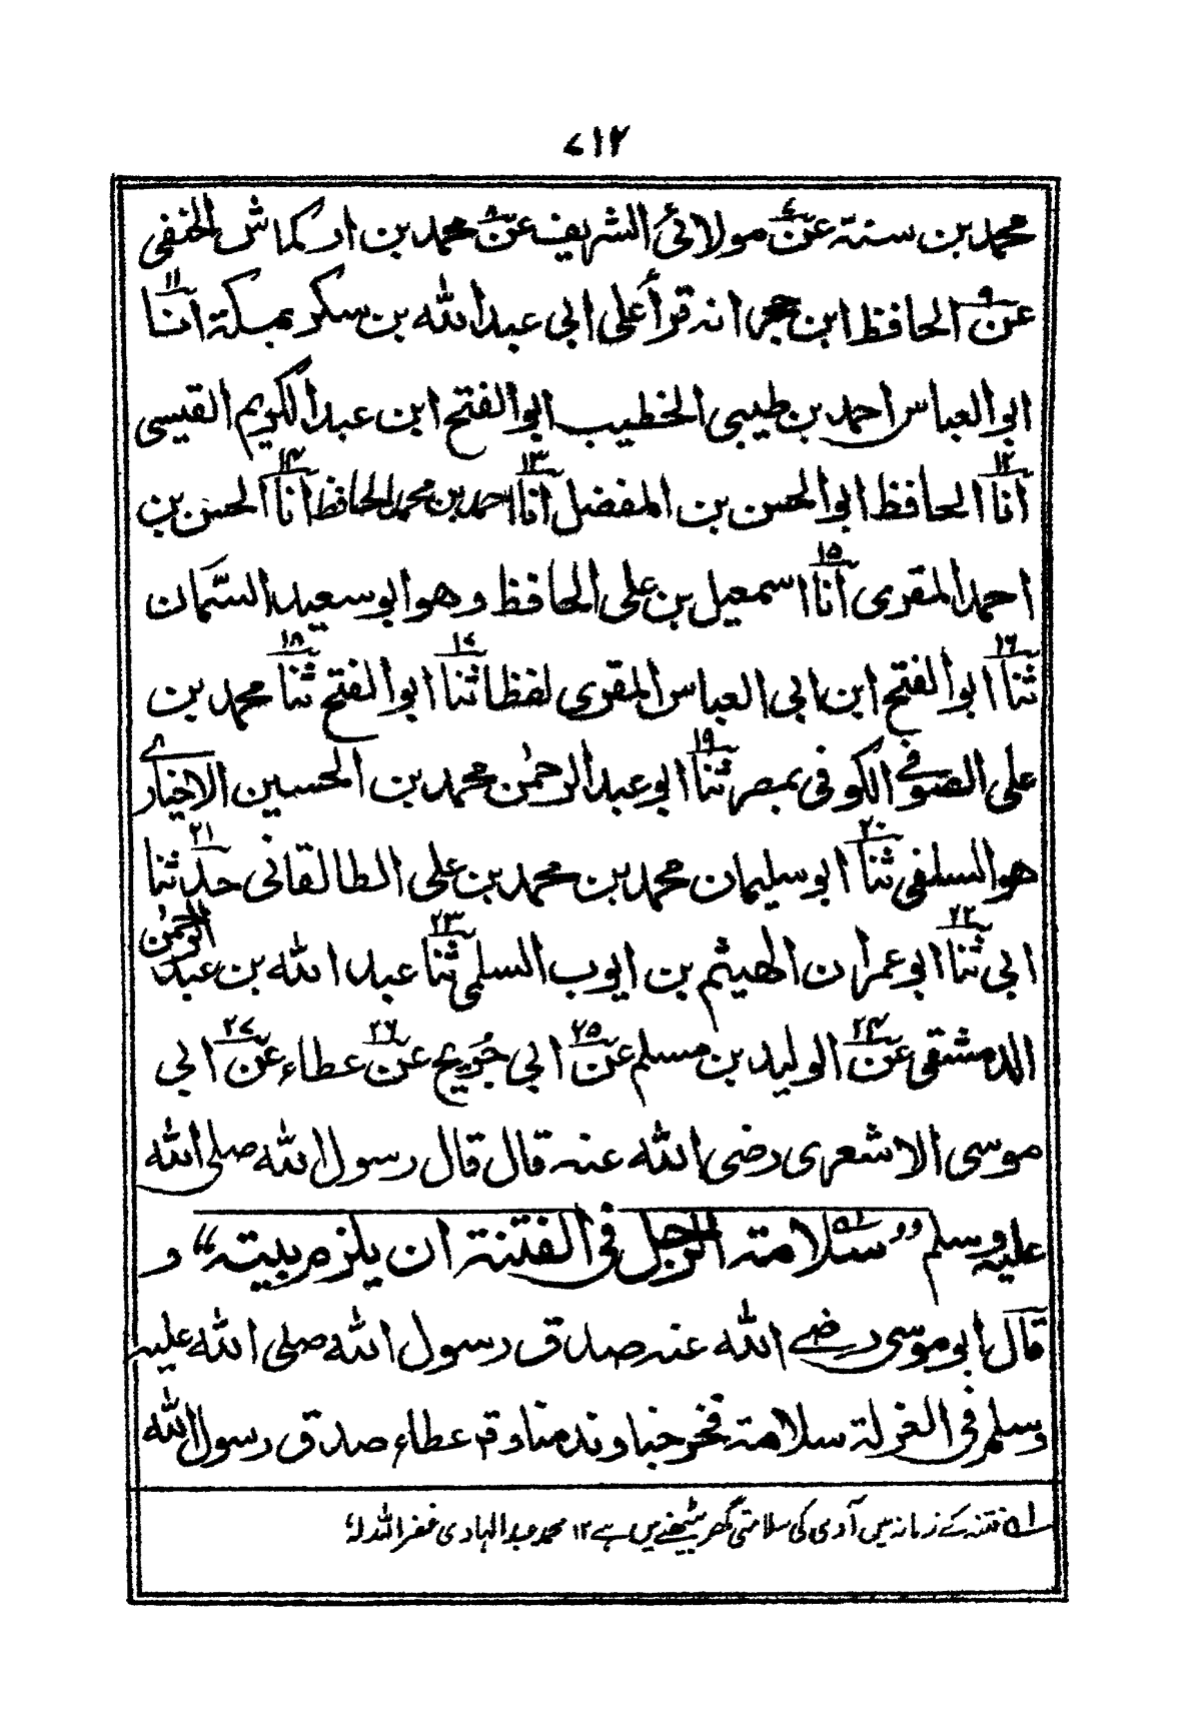 ۷۱۲
محمد بن سنتہ عن ۷ مولائی الشریف عن ۸ محمد بن ارکماش الحنفی
عن ۹ الحافظ ابن حجر انہ قرأ علی ابی عبد اللہ بن سکر بمکۃ انا ۱۱
ابو العباس احمد بن طیبی الخطیب ابو الفتح ابن عبد الکریم القیسی
انا ۱۲ الحافظ ابو الحسن بن المفضل انا ۱۳ احمد بن محمد الحافظ انا ۱۴ الحسن بن
احمد المقری انا ۱۵ اسمعیل بن علی الحافظ وھو ابو سعید السّمان
ثنا ۱۶ ابو الفتح ابن ابی العباس المقری لفظا ثنا ۱۷ ابو الفتح ثنا ۱۸ محمد بن
علی الصوفی الکوفی بمصر ثنا ۱۹ ابو عبد الرحمٰن محمد بن الحسین الاخباری
ھو السلفی ثنا ۲۰ ابو سلیمان محمد بن محمد بن علی الطالقانی حدثنا ۲۱
ابی ثنا ۲۲ ابو عمران الھیثم بن ایوب السلمی ثنا ۲۳ عبد اللہ بن عبد الرحمٰن
الدمشقی عن ۲۴ الولید بن مسلم عن ۲۵ ابی جُریج عن ۲۶ عطاء عن ۲۷ ابی
موسی الاشعری رضی اللہ عنہ قال قال رسول اللہ صلی اللہ
علیہ وسلم ”سلامۃ ۱ الرجل فی الفتنۃ ان یلزم بیتہ“ و
قال ابو موسی رضی اللہ عنہ صدق رسول اللہ صلی اللہ علیہ
وسلم فی العزلۃ سلامۃ فخرجنا وندمنا وقم عطاء صدق رسول اللہ
۱ فتنہ کے زمانہ میں آدمی کی سلامتی گھر بیٹھنے میں ہے ۱۲ محمد عبد الہادی غفر اللہ لہٗ